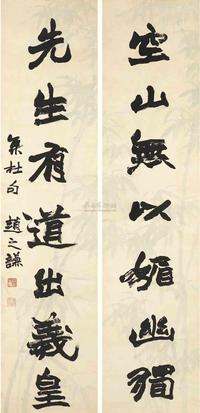 空山無以媚幽獨
先生有道出羲皇
集杜句 趙之謙